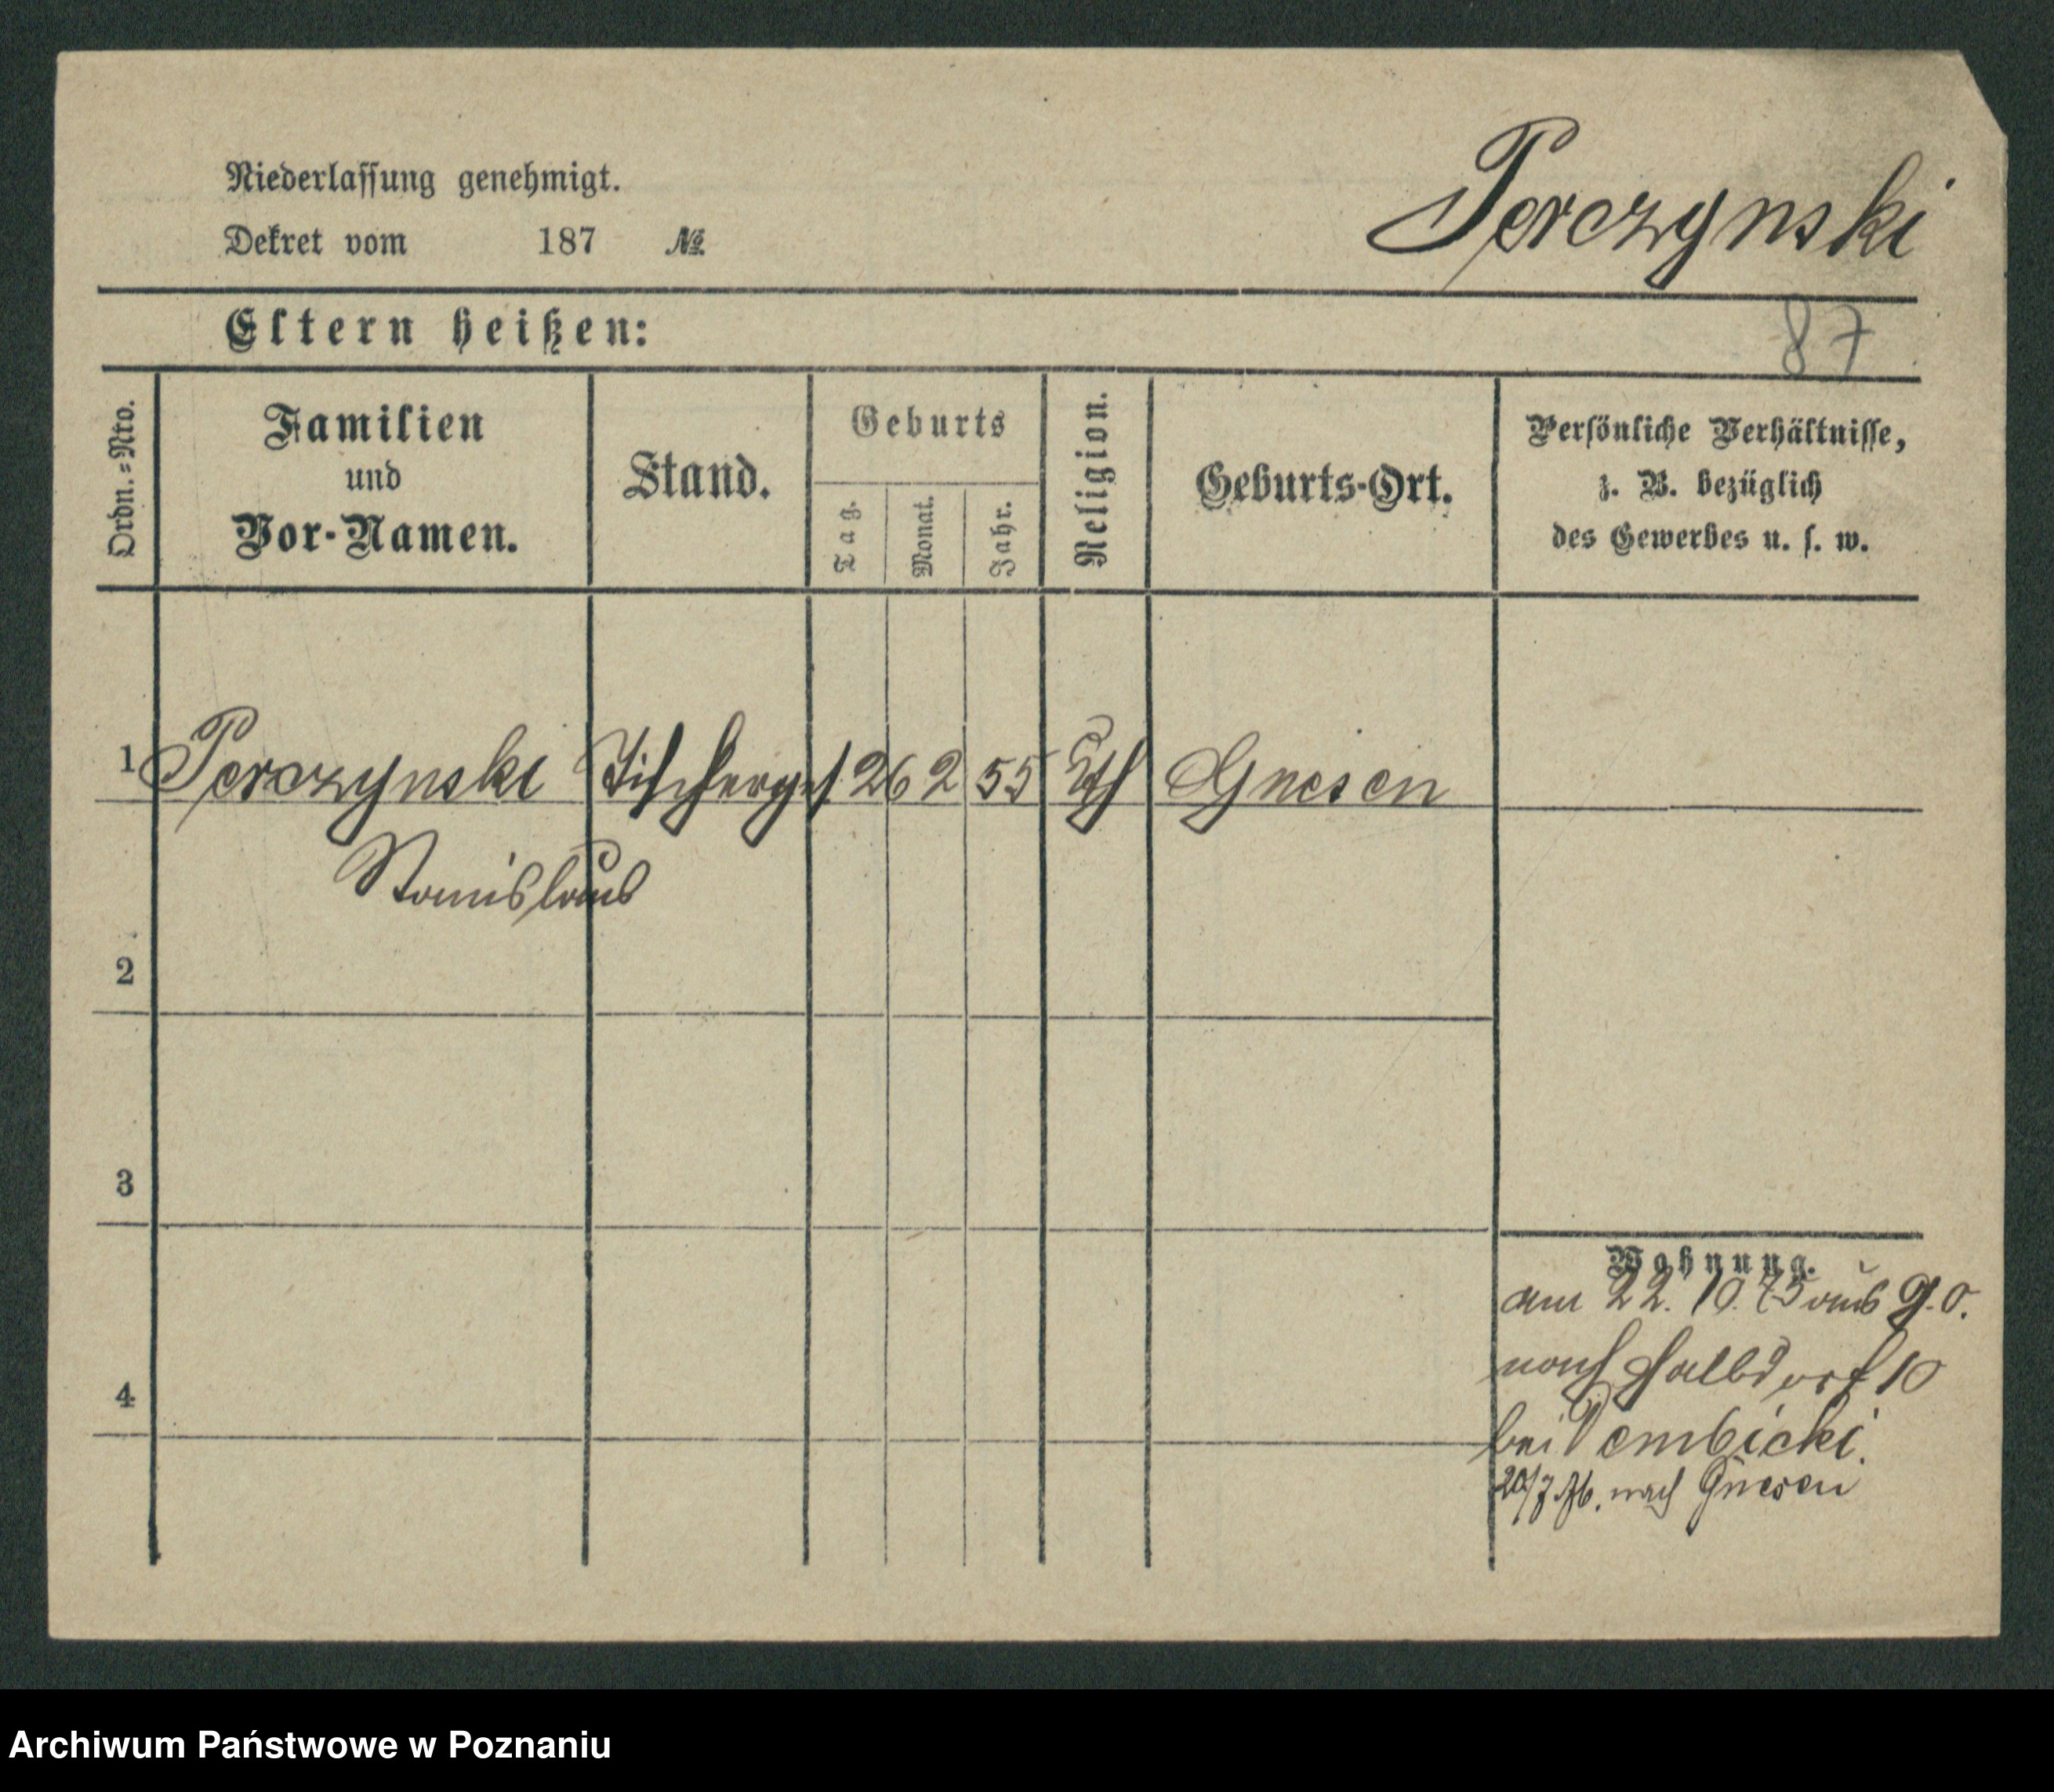 Niederlassung genehmigt.
Dekret vom 187 №
Perczynski
Eltern heißen:
87
Ordn.=Nro.
Familien
und
Vor-Namen.
Stand.
Geburts
Tag.
Monat.
Jahr.
Religion.
Geburts-Ort.
Persönliche Verhältnisse,
z. B. bezüglich
des Gewerbes u. s. w.
1 Perczynski Tischlerges. 26 2 55 Kth Gnesen
Stanislaus
2
3
4
Wohnung.
am 22. 10. 75 aus g. o.
nach Halbdorf 10
bei Dembicki.
20/7 76. nach Gnesen
Archiwum Państwowe w Poznaniu